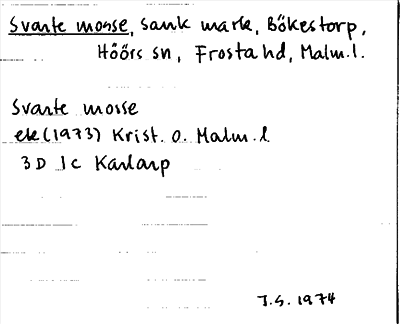 Svarte mosse, sank mark, Bökestorp,
Höörs sn, Frosta hd, Malm.l.
Svarte mosse
ek (1973) Krist. o. Malm.l
3D 1c Karlarp
J.S. 1974